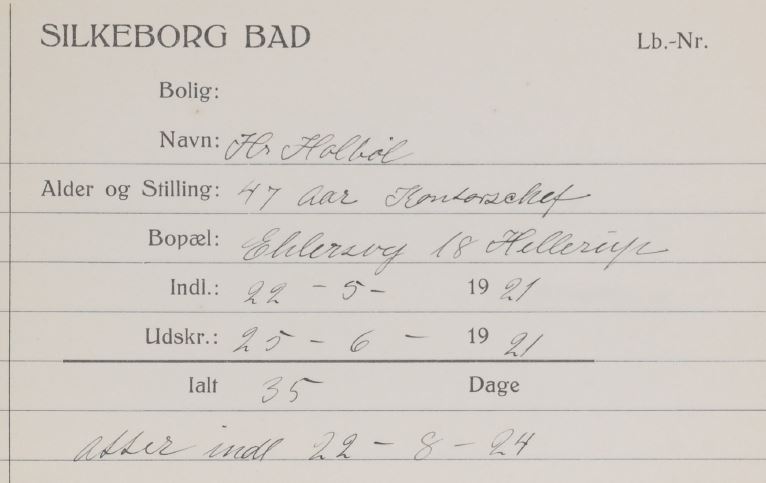 SILKEBORG BAD Lb.-Nr.
Bolig:
Navn: Hr Holböl
Alder og Stilling: 47 Aar Kontorschef
Bopæl: Ehlersvej 18 Hellerup
Indl.: 22 - 5 - 1921
Udskr.: 25 - 6 - 1921
Ialt 35 Dage
atter indl 22 - 8 - 24